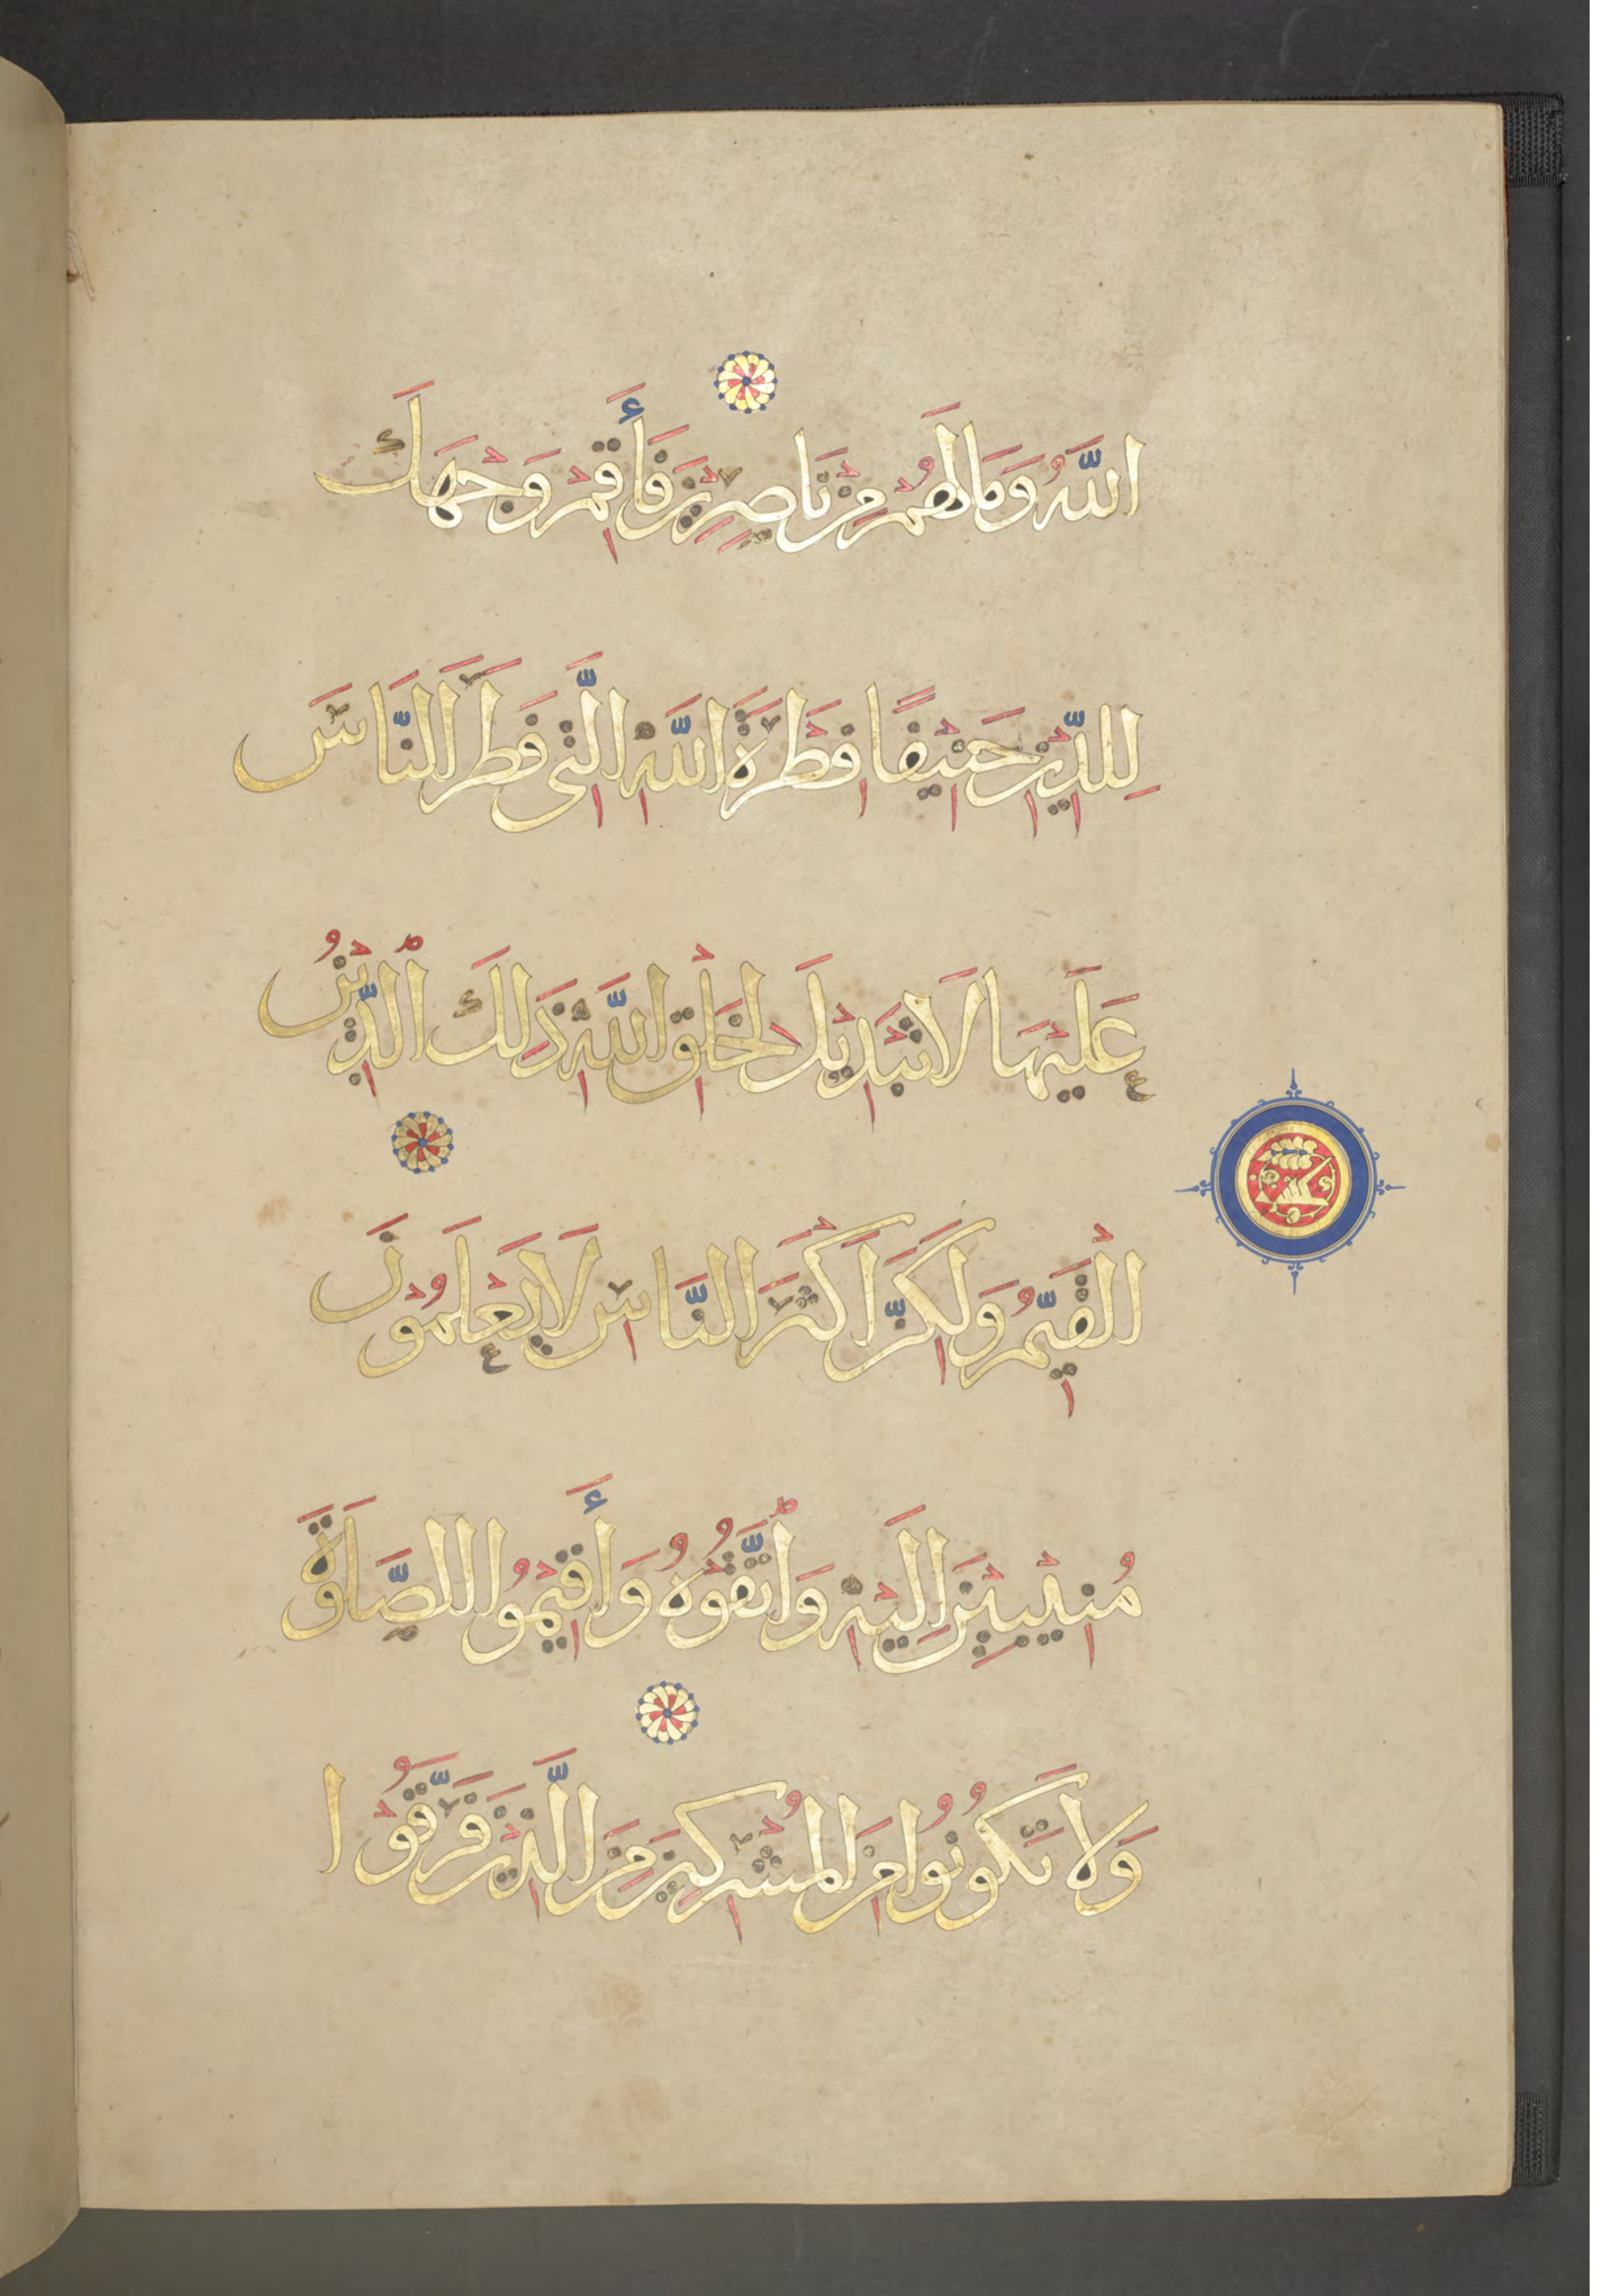 اللَّهُ وَمَا لَهُمْ مِنْ نَاصِرِيْنَ فَأَقِمْ وَجْهَكَ
لِلدِّيْنِ حَنِيْفًا فِطْرَةَ اللَّهِ الَّتِي فَطَرَ النَّاسَ
عَلَيْهَا لَا تَبْدِيْلَ لِخَلْقِ اللَّهِ ذَلِكَ ٱلدِّيْنُ
الْقَيِّمُ وَلَكِنَّ اَكْثَرَ النَّاسِ لَا يَعْلَمُوْنَ
مُنِيْبِيْنَ اِلَيْهِ وَٱتَّقُوْهُ وَأَقِيْمُوْا الصَّلَوةَ
وَلَا تَكُونُوا مِنَ الْمُشْرِكِيْنَ مِنَ الَّذِيْنَ فَرَّقُوْا